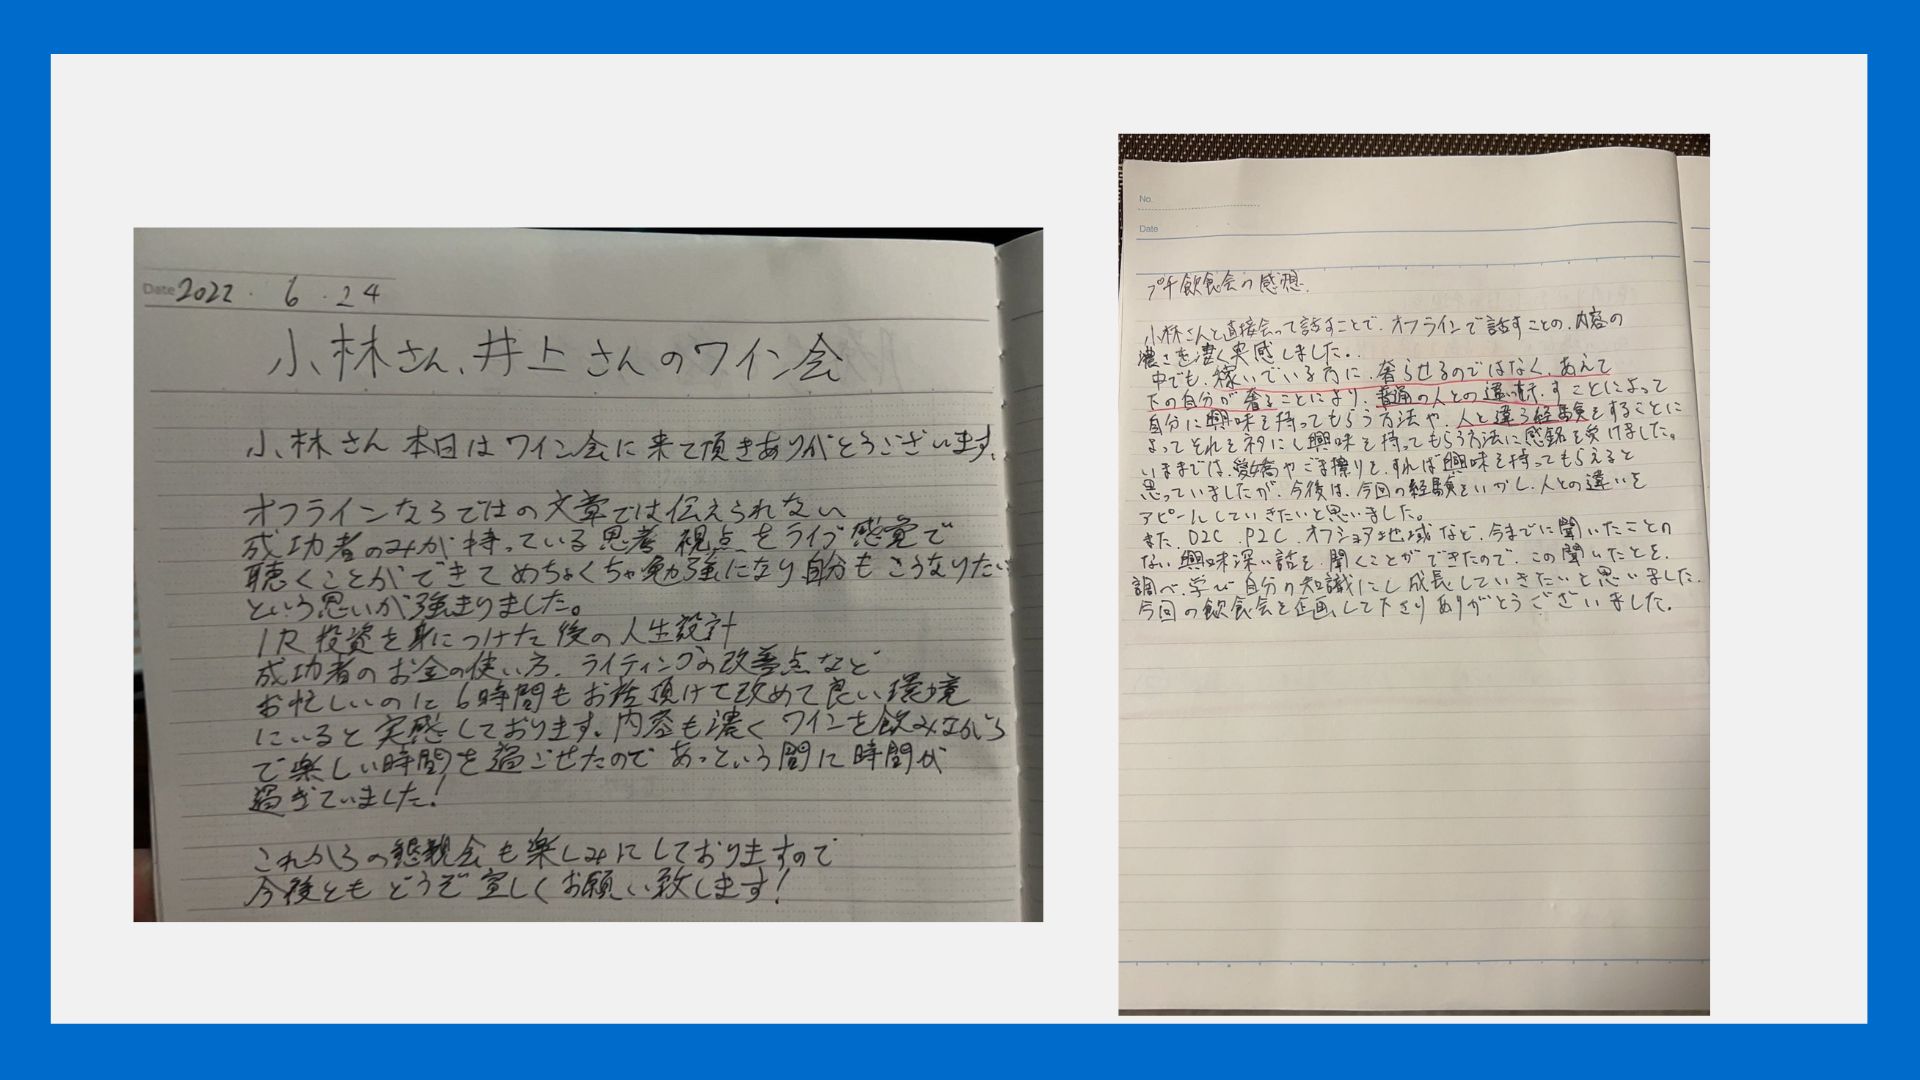 Date 2022. 6. 24
小林さん、井上さんのワイン会
小林さん本日はワイン会に来て頂きありがとうございます。
オフラインならではの文章では伝えられない
成功者のみが持っている思考 視点をライブ感覚で
聴くことができてめちゃくちゃ勉強になり自分もこうなりたい
という思いが強まりました。
IR投資を身につけた後の人生設計
成功者のお金の使い方、ライティングの改善点など
お忙しいのに6時間もお話頂けて改めて良い環境
にいると実感しております。内容も濃くワインを飲みながら
で楽しい時間を過ごせたのであっという間に時間が
過ぎていました!
これからの懇親会も楽しみにしておりますので
今後ともどうぞ宜しくお願い致します!
No.
Date
プチ飲食会の感想.
小林さんと直接会って話すことで、オフラインで話すことの、内容の
濃さを凄く実感しました。
中でも、稼いでいる方に、奢らせるのではなく、あえて
下の自分が奢ることにより、普通の人との違いを示すことによって
自分に興味を持ってもらう方法や、人と違う経験をすることに
よってそれをネタにし興味を持ってもらう方法に感銘を受けました。
いままでは、愛嬌やごま擦りを、すれば興味を持ってもらえると
思っていましたが、今後は、今回の経験をいかし、人との違いを
アピールしていきたいと思いました。
また、D2C、P2C、オフショア地域など、今までに聞いたことの
ない興味深い話を、聞くことができたので、この聞いたとを、
調べ、学び自分の知識にし成長していきたいと思いました.
今回の飲食会を企画して下さりありがとうございました.